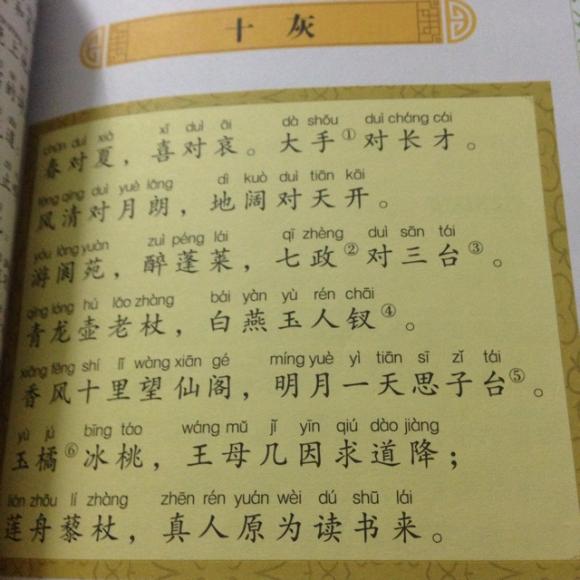 十灰
chūn duì xià xǐ duì āi dà shǒu duì cháng cái
春对夏，喜对哀。大手①对长才。
fēng qīng duì yuè lǎng dì kuò duì tiān kāi
风清对月朗，地阔对天开。
yóu làng yuàn zuì péng lái qī zhèng duì sān tái
游阆苑，醉蓬莱，七政②对三台③。
qīng lóng hú lǎo zhàng bái yàn yù rén chāi
青龙壶老杖，白燕玉人钗④。
xiāng fēng shí lǐ wàng xiān gé míng yuè yì tiān sī zǐ tái
香风十里望仙阁，明月一天思子台⑤。
yù jú bīng táo wáng mǔ jǐ yīn qiú dào jiàng
玉橘⑥冰桃，王母几因求道降；
lián zhōu lí zhàng zhēn rén yuán wèi dú shū lái
莲舟藜杖，真人原为读书来。